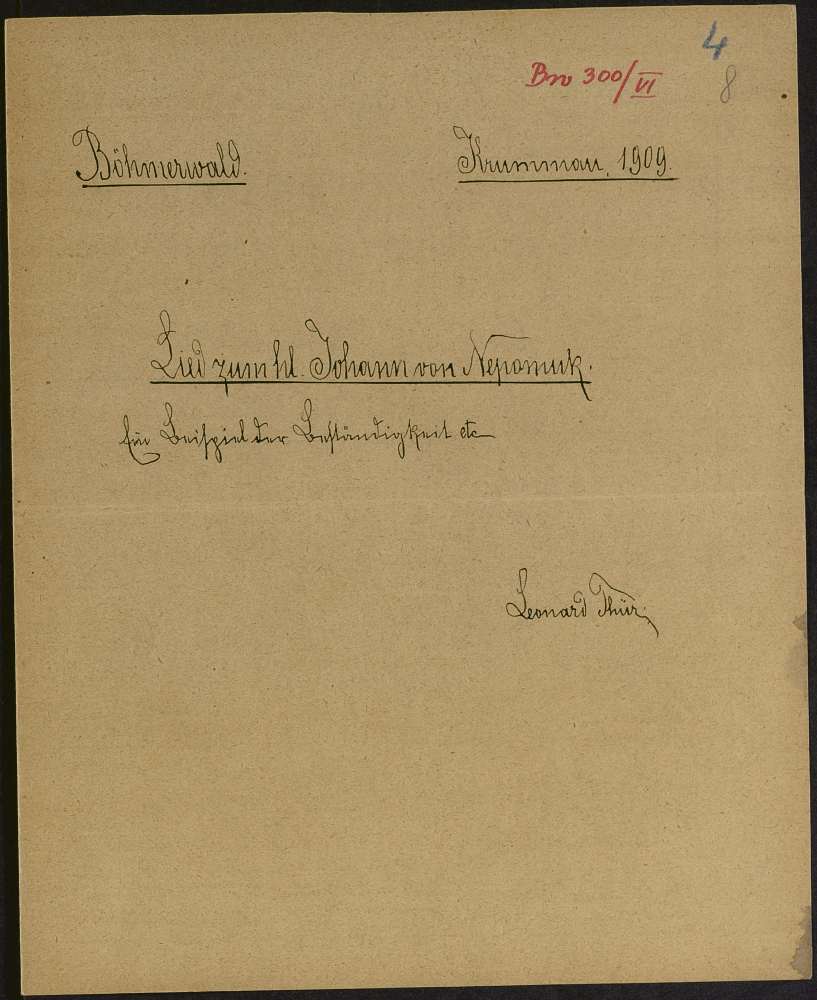 4
Bro 300/VI
8
Böhmerwald. Krummau, 1909.
Lied zum hl. Johann von Nepomuk.
Ein Beispiel der Beständigkeit etc
Leonard Thür.